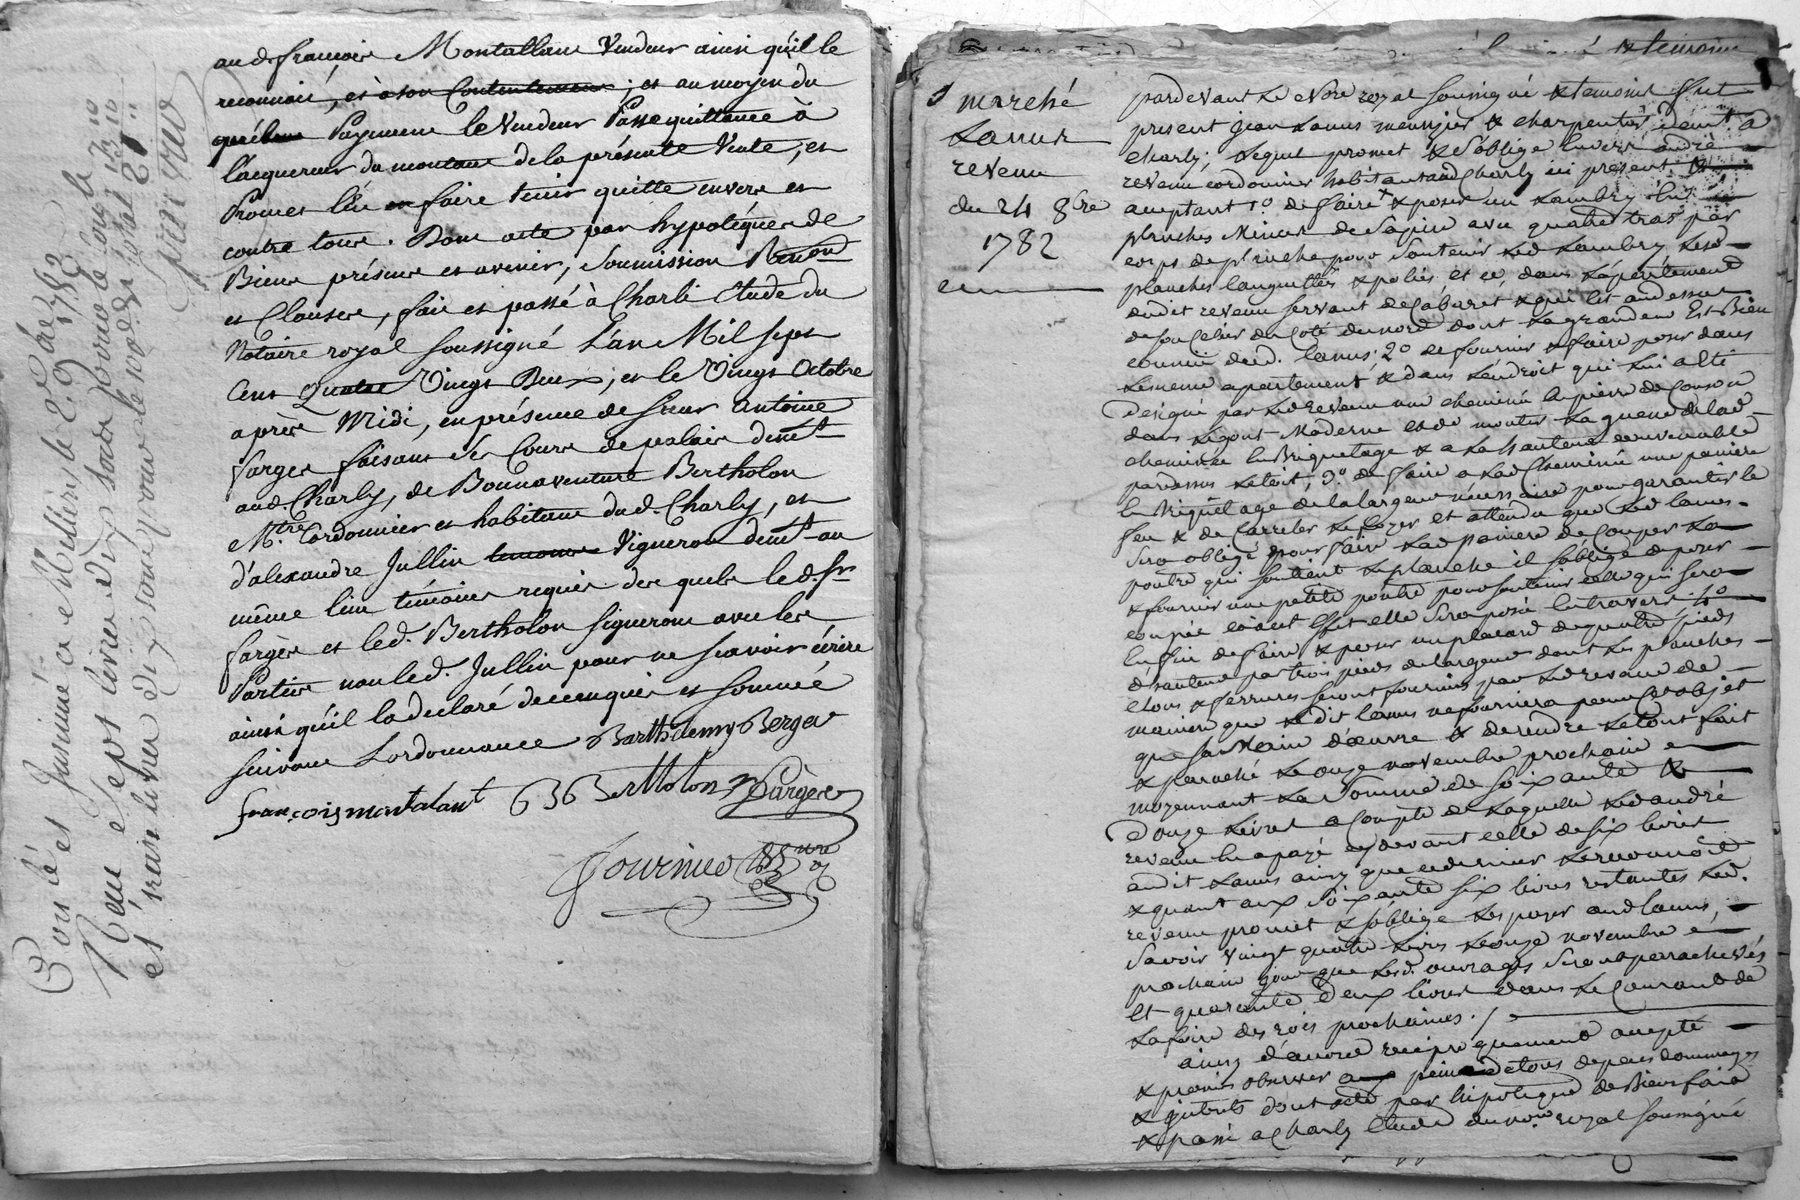 aud. françois Montallan Vendeur ainsi qu'il le
reconnoit, et à son Contentement ; et au moyen du
Payement le Vendeur Passe quittance à
l'acquereur du montant de la présente Vente, et
Promet l'en faire tenir quitte envers et
contre tous. Dont acte par hypotéques de
Biens présents et avenir, Soumission Renon
et Clauses, fait et passé à Charli Etude du
Notaire royal soussigné L'an Mil sept
Cent Quatre Vingt Deux, et le Vingt Octobre
après Midi, en présence de sieur Antoine
fargès faisant ses Cours de palais demt
aud. Charly, de Bonnaventure Bertholon
Mtre Cordonnier et habitant dud. Charly, et
d'alexandre Jullin Vigneron demt au
même lieu témoins requis des quels led. Sr
fargès et led. Bertholon signeront avec les
Parties non led. Jullin pour ne scavoir écrire
ainsi qu'il la declaré de ce enquis et sommé
suivant Lordonnance Barthelemy Berger
françois montalant B Bertholon Fargès
Controlé et Insinué a Millery le 2 9bre 1782
Reçu sept livres dix sous
et treize livres dix sous pour
& temoins
marché
Lanus
revenu
du 24 8bre
1782
pardevant Le Nore royal soussigné & temoins fut
present jean Lanus menusier & charpentier demt a
charly, Lequel promet & s'oblige envers andré
revenu cordonnier habitant aud Charly ici present &
acceptant 1o de faire & poser un Lambry en
planches Minces de Sapin avec quatre tras par
corps de planche pour soutenir Led Lambry Lesd
planches languettés & polies et ce dans L'apartement
dudit revenu servant de Cabaret & qui est audessus
de son Celier du Coté du nord dont La grandeur Est Bien
connue dud. lanus; 2o de fournir & faire poser dans
Le meme apartement & dans L'endroit qui lui a eté
designé par Led revenu une cheminée en pierre de Couson
dans Le gout Moderne et de monter La queue de lad
cheminée en Briquetage & a La hauteur convenable
pardessus Le toit, 3o de faire a Lad Cheminée une paniere
en Briquetage de la largeur necessaire pour garantir le
feu & de Carreler Le foyer et attendu que Led lanus
Sera obligé pour faire Lad paniere de Couper La
poutre qui soutient Le planché il s'oblige de poser
& fournir une petite poutre pour soutenir celle qui sera
coupée a cet effet elle sera posée en travers 4o
Enfin de faire & poser un placard de quatre pieds
d'hauteur par trois pieds de largeur dont Les planches
clous & ferrures seront fournies par Led revenu de
maniere que Ledit lanus ne fournira pour Cet objet
que sa Main d'œuvre & de rendre Le tout fait
& parachevé Le onze novembre prochain
moyennant La Somme de soixante &
Douze Livres a Compte de Laquelle Led andré
revenu en a payé cy devant celle de six livres
audit Lanus ainsy que ce dernier Le reconnoit
& quant aux soixante six livres restantes Led.
revenu promet & s'oblige Les payer aud lanus,
Savoir vingt quatre Livres Le onze novembre
prochain jour que Lesd. ouvrages seront parrachevés
Et quarante Deux livres dans Le Courant de
La foire des rois prochaines.
ainsy d'accord reciproquement accepté
& promis observer a peine de tous depens dommages
& interets dont acte par hipoteque de Biens fait
& passé a Charly Etude du nore royal soussigné